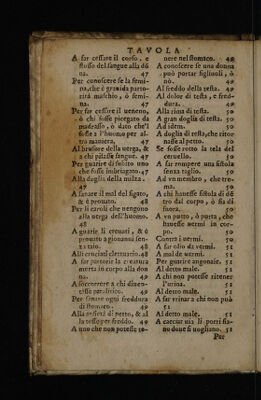 TAVOLA
A far cessare il corso, e
flusso del sangue alla dõ
na. 47
Per conoscere se la femi-
na, che è gravida parto-
rirà maschio, ò femi-
na. 47
Per far cessare il veneno,
ò chi fosse picegato da
ò dato che li
fosse a l'huomo per al-
tra maniera, 47
Al brusore della verga, &
a chi pisasse sangue. 47
Per guarire di subito uno
che fosse imbriagato. 47
Alla doglia della milza.
47
A sanare il mal del sigato,
& è provato. 48
Per li caroli che vengono
alla verga dell'huomo.
48
A guarir li crevari, & è
provato a giovani sen-
za taio. 48
Alli cruciati 48
A far partorir la creatura
morta in corpo alla don
na. 49
A soccorrere a chi diven-
tasse paralitico. 49
Per sanare ogni freddura
di stomaco. 49
Alla ventosità di petto, & al
la tosse per freddo. 49
A uno che non potesse te-
nere nel stomaco. 49
A conoscere se una donna
può portar figliuoli, ò
nò. 49
Al freddo della testa. 49
Al dolor di testa, e fred-
dura. 49
Alla rima di testa. 50
A gran doglia di testa. 50
Ad idem. 50
A doglia di testa, che ritor
nasse al petto. 50
Se fosse rotto la tela del
cervello. 50
A far rompere una fistola
senza taglio. 50
Ad vn membro, che tre-
ma. 50
A chi havesse fistola di dē
tro dal corpo, ò sia di
fuora. 50
A vn putto, ò putta, che
havesse vermi in cor-
po. 50
Contra i vermi. 50
A far olio da vermi. 51
A mal de vermi. 51
Per guarire angonaie. 51
Al detto male. 51
A chi non potesse ritener
l'urina. 51
Al detto male. 51
A far vrinar a chi non può
51
Al detto male. 51
A cacciar via li porri sia-
no dove si vogliano. 51
Per